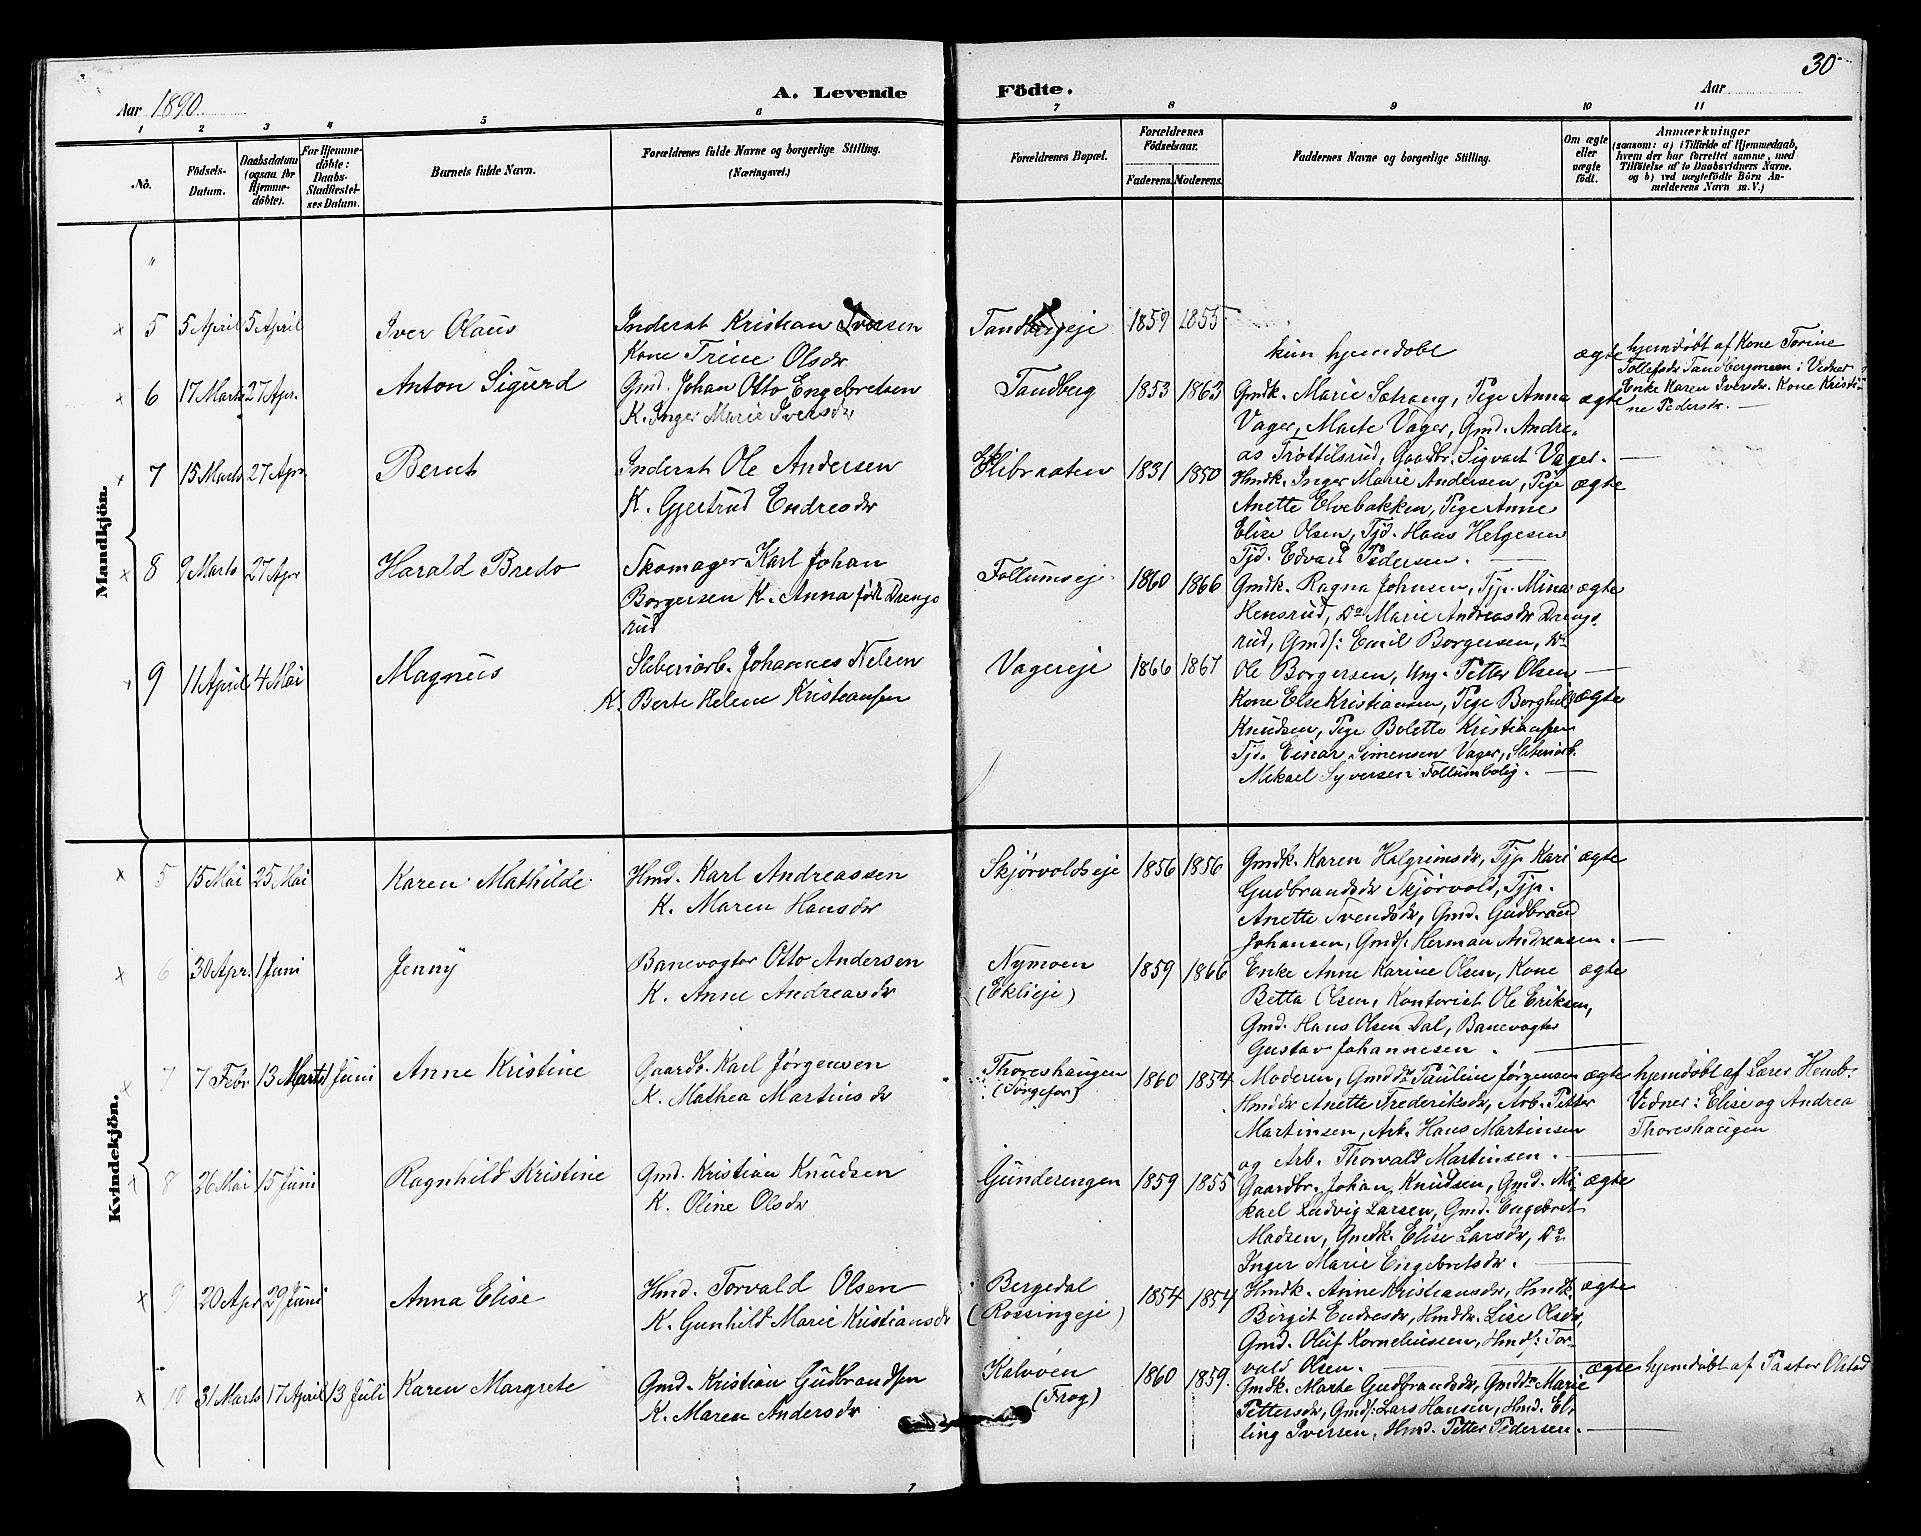 30
Aar 1890
A. Levende Födte.
Aar
1 2 3 4 5 6 7 8 9 10 11
No.
Födsels-Datum.
Daabsdatum (ogsaa for Hjemme-döbte).
For Hjemme-döbte: Daabs-Stadfæstel-ses Datum.
Barnets fulde Navn.
Forældrenes fulde Navne og borgerlige Stilling.
(Næringsvei.)
Forældrenes Bopæl.
Forældrenes Födselsaar.
Faderens. Moderens.
Faddernes Navne og borgerlige Stilling.
Om ægte eller uægte födt.
Anmærkninger
(saasom: a) i Tilfælde af Hjemmedaab, hvem der har forrettet samme, med Tilföielse af to Daabsvidners Navne. og b) ved uægtefödte Börn An-melderens Navn m. V.)
Mandkjön.
"
× 5 5 April 5 April Iver Olaus Inderst Kristian Iversen Tandbergeie 1859 1855
Kone Trine Olsdr kun hjemdøbt ægte hjemdøbt af Kone Torine
Tollefsdr Tandbergmoen: Vidner
Enke Karen Iversdr. Kone Kristi-
ne Pedersdr. —
× 6 17 Marts 27 Apr. Anton Sigurd Gmd. Johan Otto Engebretsen Tandberg 1853 1863 Gmdk. Marie Sætrang, Pige Anna ægte
K. Inger Marie Iversdr, Vager, Marte Vager, Gmd. Andre-
as Trøttilsrud, Gaardbr. Sigvart Vager. —
× 7 15 Marts 27 Apr. Bernt Inderst Ole Andersen Hlibraaten 1831 1850 Hmdk. Inger Marie Andersen, Pige ægte
K. Gjertrud Endresdr Anette Elvebakken, Pige Anne
Elise Olsen, Tjd. Hans Helgesen
Tjd. Edvard Pedersen. —
× 8 9 Marts 27 Apr Harald Bredo Skomager Karl Johan Follumseje 1860 1866 Gmdk. Ragna Johnsen, Tjp. Mina ægte
Borgersen K. Anna født Drengs Hensrud, Do Marie Andreasdr Drengs
rud rud, Gmds: Emil Borgersen, Do
Ole Borgersen, Ung. Petter Olsen —
× 9 11 April 4 Mai Magnus Sliberiarb. Johannes Nelsen Vagereje 1866 1867
K. Berte Helene Kristiansen Kone Else Kristiansen, Pige Borghild ægte
Knudsen, Pige Bolette Kristiansen
Tjd. Einar Simensen Vager, Sliberiarb.
Mikael Syversen Follumbolig. —
Kvindekjön.
× 5 15 Mai 25 Mai Karen Mathilde Hmd. Karl Andreassen Skjørvoldseje 1856 1856 Gmdk. Karen Halgrimsdr, Tjp Kari ægte
K. Maren Hansdr Gudbrandsdr Skjørvold, Tjp.
Anette Svendsdr, Gmd. Gudbrand
Johansen, Gmds: Herman Andreasen. —
× 6 30 Apr. 1 Juni Jenny Banevogter Otto Andersen Nymoen 1859 1866 Enke Anne Karine Olsen, Kone ægte
K. Anne Andreasdr (Eklieje) Betta Olsen, Kontorist Ole Eriksen,
Gmd. Hans Olsen Dal, Banevogter
Gustav Johannesen. —
× 7 7 Febr 13 Marts 1 Juni Anne Kristine Gaardb. Karl Jørgensen Thoreshaugen 1860 1854 Moderen, Gmddr Pauline Jørgensen ægte hjemdøbt af Lærer Hemb.
K. Mathea Martinsdr (Sørgefor) Hmddr Anette Frederiksdr, Arb. Petter Vidner: Elise og Andrea
Martinsen, Arb. Hans Martinsen Thoreshaugen
og Arb. Thorvald Martinsen. —
× 8 26 Mai 15 Juni Ragnhild Kristine Gmd. Kristian Knudsen Gunderengen 1859 1855 Gaardbr. Johan Knudsen, Gmd. Mi- ægte
K. Oline Olsdr kael Ludvig Larsen, Gmd. Engebret
Madsen, Gmdk. Elise Larsdr, Do
Inger Marie Engebretsdr. —
× 9 20 Apr 29 Juni Anna Elise Hmd. Torvald Olsen Bergedal 1854 1854 Hmdk. Anne Kristiansdr, Hmdk. ægte
K. Gunhild Marie Kristiansdr (Rossingeje) Birgit Endresdr, Hmddr. Lise Olsdr,
Gmd. Oluf Korneliussen, Hmds: Tor-
vald Olsen. —
× 10 31 Marts 17 April 13 Juli Karen Margrete Gmd. Kristian Gudbrandsen Kalvøen 1860 1859. ægte hjemdøbt af Pastor Olstad
K. Maren Andersdr (Frog) Gmdk. Marte Gudbrandsdr, Gmddr Marie
Pettersdr, Gmds: Lars Hansen, Hmd. El-
ling Iversen, Hmd. Petter Pedersen. —